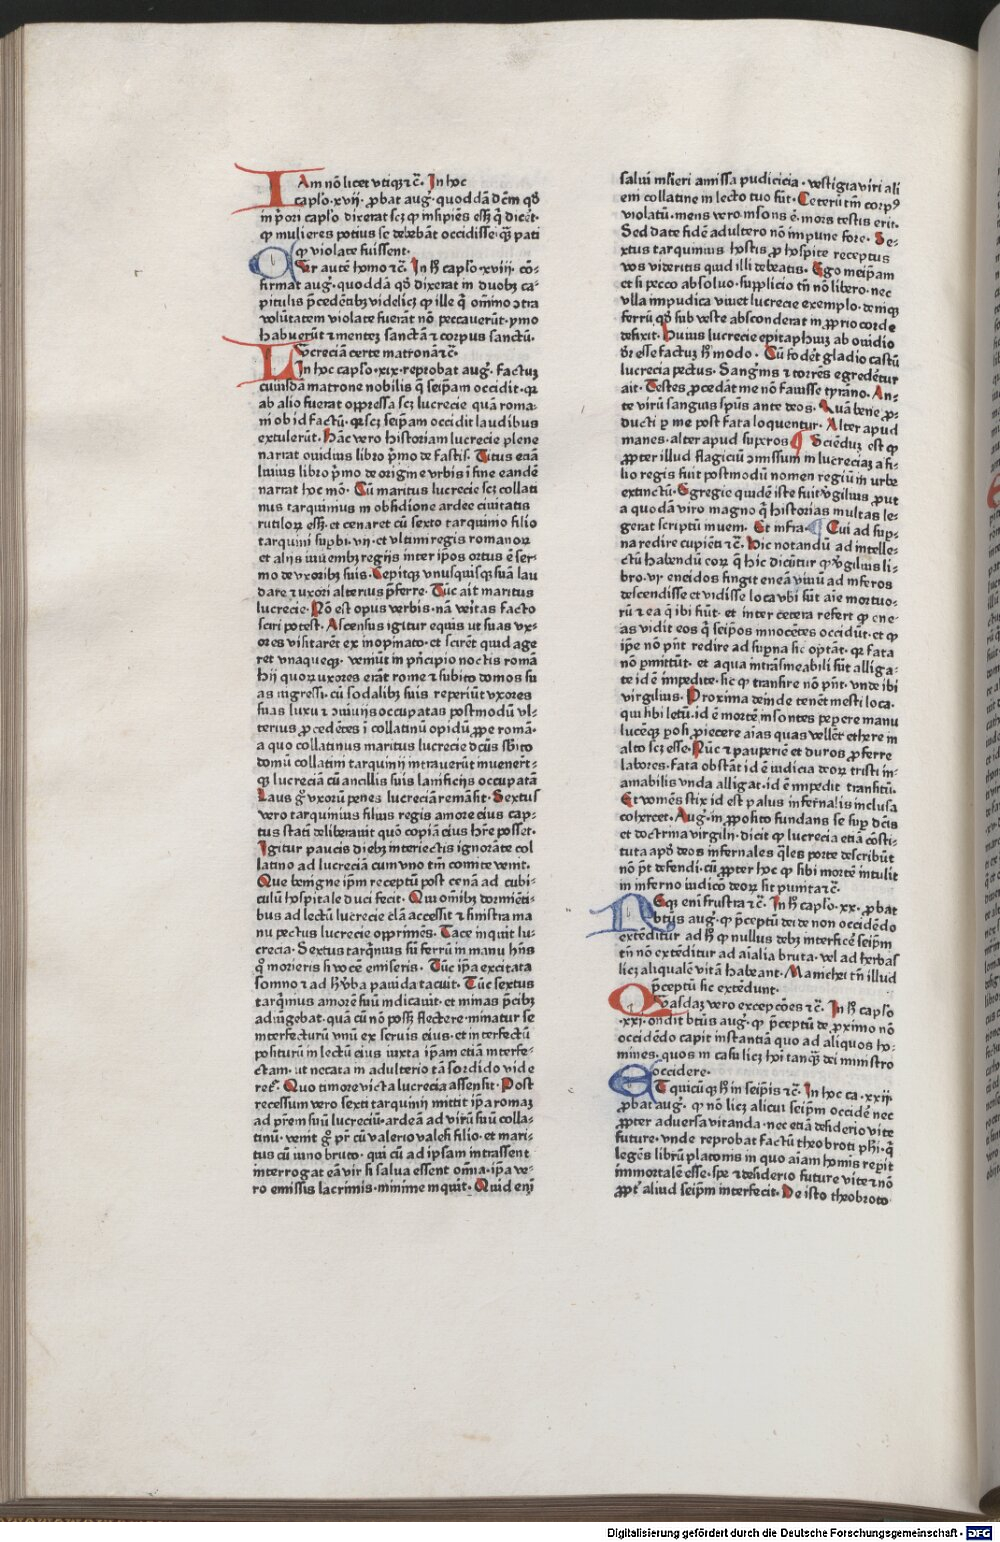 IAm nō licet vtiqꝫ ⁊c̄. In hoc
capl̓o .xvij. ꝓbat aug᷑. quoddā dc̄m qd̓
in p̓ori capl̓o dixerat scꝫ ꝙ insipiēs essꝫ q̓ dicēt.
ꝙ mulieres potius se debebāt occidisse q̄ꝫ pati
ꝙ violate fuissent.
Cur autē homo ⁊c̄. In h̓ capl̓o .xviij. cō-
firmat aug᷑. quoddā qd̓ dixerat in duobꝫ ca-
pitulis p̄cedētibꝫ videlicꝫ ꝙ ille q̄ om̄ino ↄtra
volūtatem violate fuerāt nō peccauerūt. ymo
habuerūt ⁊ mentez sanctā ⁊ corpus sanctū.
Lucreciā certe matronā ⁊c̄.
In hoc capl̓o .xix. reprobat aug᷑. factuꝫ
cuiusdā matrone nobilis q̄ seip̄am occidit. qꝛ
ab alio fuerat oppressa scꝫ lucrecie quā roma-
ni ob id factū. qꝛ scꝫ seip̄am occidit laudibus
extulerūt. Hāc vero historiam lucrecie plene
narrat ouidius libro p̓mo de fastis. Titus etiā
liuius libro p̓mo de origine vrbis ī fine eandē
narrat hoc mō. Cū maritus lucrecie scꝫ collati
nus tarquinus in obsidione ardee ciuitatis
rutiloꝝ essꝫ. et cenaret cū sexto tarquino filio
tarquini suꝑbi .vij. et vltimi regis romanoꝝ
et alijs iuuenibꝫ regijs inter ip̄os ortus ē ser-
mo de vxoribꝫ suis. Cepitqꝫ vnusquisqꝫ suā lau
dare ⁊ vxori alterius p̄ferre. Tūc ait maritus
lucrecie. Nō est opus verbis. nā veritas facto
sciri potest. Ascensus igitur equis ut suas vx-
ores visitarēt ex inopinato. et scirēt quid age
ret vnaqueqꝫ. veniūt in p̄ncipio noctis romā
hij quoꝝ vxores erāt rome ⁊ subito domos su
as ingressi. cū sodalibꝫ suis reperiūt vxores
suas luxu ⁊ ↄuiuijs occupatas postmodū vl-
terius ꝓcedētes ī collatinū opidū ꝓpe romā.
a quo collatinus maritus lucrecie dc̄us sb̓ito
domū collatini tarquinij intrauerūt inuenerūt-
qꝫ lucreciā cū ancillis suis lanificijs occupatā
Laus g̊ vxorū penes lucreciā remāsit. Sextus
vero tarquinius filius regis amore eius cap-
tus stati deliberauit quō copiā eius hr̄e posset.
Igitur paucis diebꝫ interiectis ignorāte col
latino ad lucreciā cum vno tm̄ comite venit.
Que benigne ip̄m receptū post cenā ad cubi-
culū hospitale duci fecit. Qui om̄ibꝫ dormiēti-
bus ad lectū lucrecie clā accessit ⁊ sinistra ma
nu pectus lucrecie opprimēs. Tace inquit lu-
crecia. Sextus tarq̓nius sū ferrū in manu hn̄s
q̊ morieris si vocē emiseris. Tūc ip̄a excitata
somno ⁊ ad h̓ v̓ba pauida tacuit. Tūc sextus
tarq̓nius amorē suū indicauit. et minas p̄cibꝫ
adiūgebat. quā cū nō possꝫ flectere. minatur se
interfecturū vnū ex seruis eius. et interfectū
positurū in lectū eius iuxta ip̄am etiā interfe-
ctam. ut necata in adulterio tā sordido vide
ret᷑. Quo timore victa lucrecia assensit. Post
recessum vero sexti tarquinij mittit ip̄a romaꝫ
ad pr̄em suū lucreciū. ardeā ad virū suū colla-
tinū. venit g̊ pr̄ cū valerio valesi filio. et mari-
tus cū iuno bruto. qui cū ad ipsam intrassent
interrogat eā vir si salua essent om̄ia. ip̄a ve-
ro emissis lacrimis. minime inquit. Quid enī
salui ml̓ieri amissa pudicicia. vestigia viri ali
em collatine in lecto tuo sūt. Ceterū tm̄ corpꝰ
violatū. mens vero insons ē. mors testis erit.
Sed date fidē adultero nō impune fore. Se-
xtus tarquinius hostis ꝓ hospite receptus
vos videritis quid illi debeatis. Ego meip̄am
etsi pecco absoluo. supplicio tn̄ nō libero. nec
vlla impudica viuet lucrecie exemplo. deniqꝫ
ferrū qd̓ sub veste absconderat in ꝓprio corde
defixit. Huius lucrecie epitaphiuꝫ ab ouidio
dr̄ esse factuꝫ h̓ modo. Cū foderet gladio castū
lucrecia pectus. Sanguinis ⁊ torrēs egrederetur
ait. Testes ꝓcedāt me nō fauisse tyrāno. An-
te virū sanguis sp̄us ante deos. Quā bene ꝓ-
ducti ꝑ me post fata loquentur. Alter apud
manes. alter apud suꝑos. ¶ Sciēduꝫ est ꝙ
ꝓpter illud flagiciū ↄmissum in lucreciaꝫ a fi-
lio regis fuit postmodū nomen regiū in vrbe
extinctū. Egregie quidē iste fuit v̓gilius ꝓut
a quodā viro magno q̄ historias multas le-
gerat scriptū inueni. Et infra. ¶ Cui ad suꝑ-
na redire cupiēti ⁊c̄. Hic notandū ad intelle-
ctū habendū eoꝝ q̄ hic dicūtur ꝙ v̓gilius li-
bro .vj. eneidos fingit eneā viuū ad inferos
descendisse et vidisse loca vbi sūt aīe mortuo-
rū ⁊ ea q̄ ibi fiūt. et inter cetera refert ꝙ ene-
as vidit eos q̄ seip̄os innocētes occidūt. et ꝙ
ip̄e nō pn̄t redire ad suꝑna sic optāt. qꝛ fata
nō ꝑmittūt. et aqua intrāsmeabili sūt alliga-
te id ē impedite. sic ꝙ transire nō pn̄t. vnde ibi
virgilius. Proxima deinde tenēt mesti loca.
qui sibi letū. id ē mortē insontes pepere manu
lucēqꝫ ꝑosi ꝓiecere aīas quas vellēt ethere in
alto scꝫ esse. Nūc ⁊ pauperiē et duros ꝓferre
labores. fata obstāt id ē iudicia deoꝝ tristi in-
amabilis vnda alligat. id ē impedit transitū.
Et nomēs stix id est palus infernalis inclusa
cohercet. Aug᷑. in ꝓposito fundans se suꝑ dc̄is
et doctrina virgilij. dicit ꝙ lucrecia etiā cōsti-
tuta apd̓ deos infernales q̄les poete describūt
nō pōt defendi. cū ꝓpter hoc ꝙ sibi mortē intulit
in inferno iudicio deoꝝ sit punita ⁊c̄.
Neqꝫ eni frustra ⁊c̄. In h̓ capl̓o .xx. ꝓbat
bt̄us aug᷑. ꝙ p̄ceptū dei de non occidēdo
extēditur ad h̓ ꝙ nullus debꝫ interficē seip̄m
tn̄ nō extēditur ad aīalia bruta. vel ad herbas
licꝫ aliqualē vitā habeant. Manichei tn̄ illud
p̄ceptū sic extēdunt.
Quasdaꝫ vero excepcōes ⁊c̄. In h̓ capl̓o
.xxi. ondit bt̄us aug᷑. ꝙ p̄ceptū de ꝓximo nō
occidēdo capit instantiā quo ad aliquos ho-
mines. quos in casu licꝫ hoi tanqꝫ dei ministro
occidere.
ET quicūqꝫ h̓ in seip̄is ⁊c̄. In hoc ca .xxij.
ꝓbat aug᷑. ꝙ nō licꝫ alicui seip̄m occidē nec
ꝓpter aduersa vitanda. nec etiā desiderio vite
future. vnde reprobat factū theobroti ph̓i. q̄
legēs librū platonis in quo aīam hoīnis rep̓it
immortalē esse. spe ⁊ desiderio future vite ⁊ nō
ꝓpt̓ aliud seip̄m interfecit. De isto theobroto
Digitalisierung gefördert durch die Deutsche Forschungsgemeinschaft - DFG